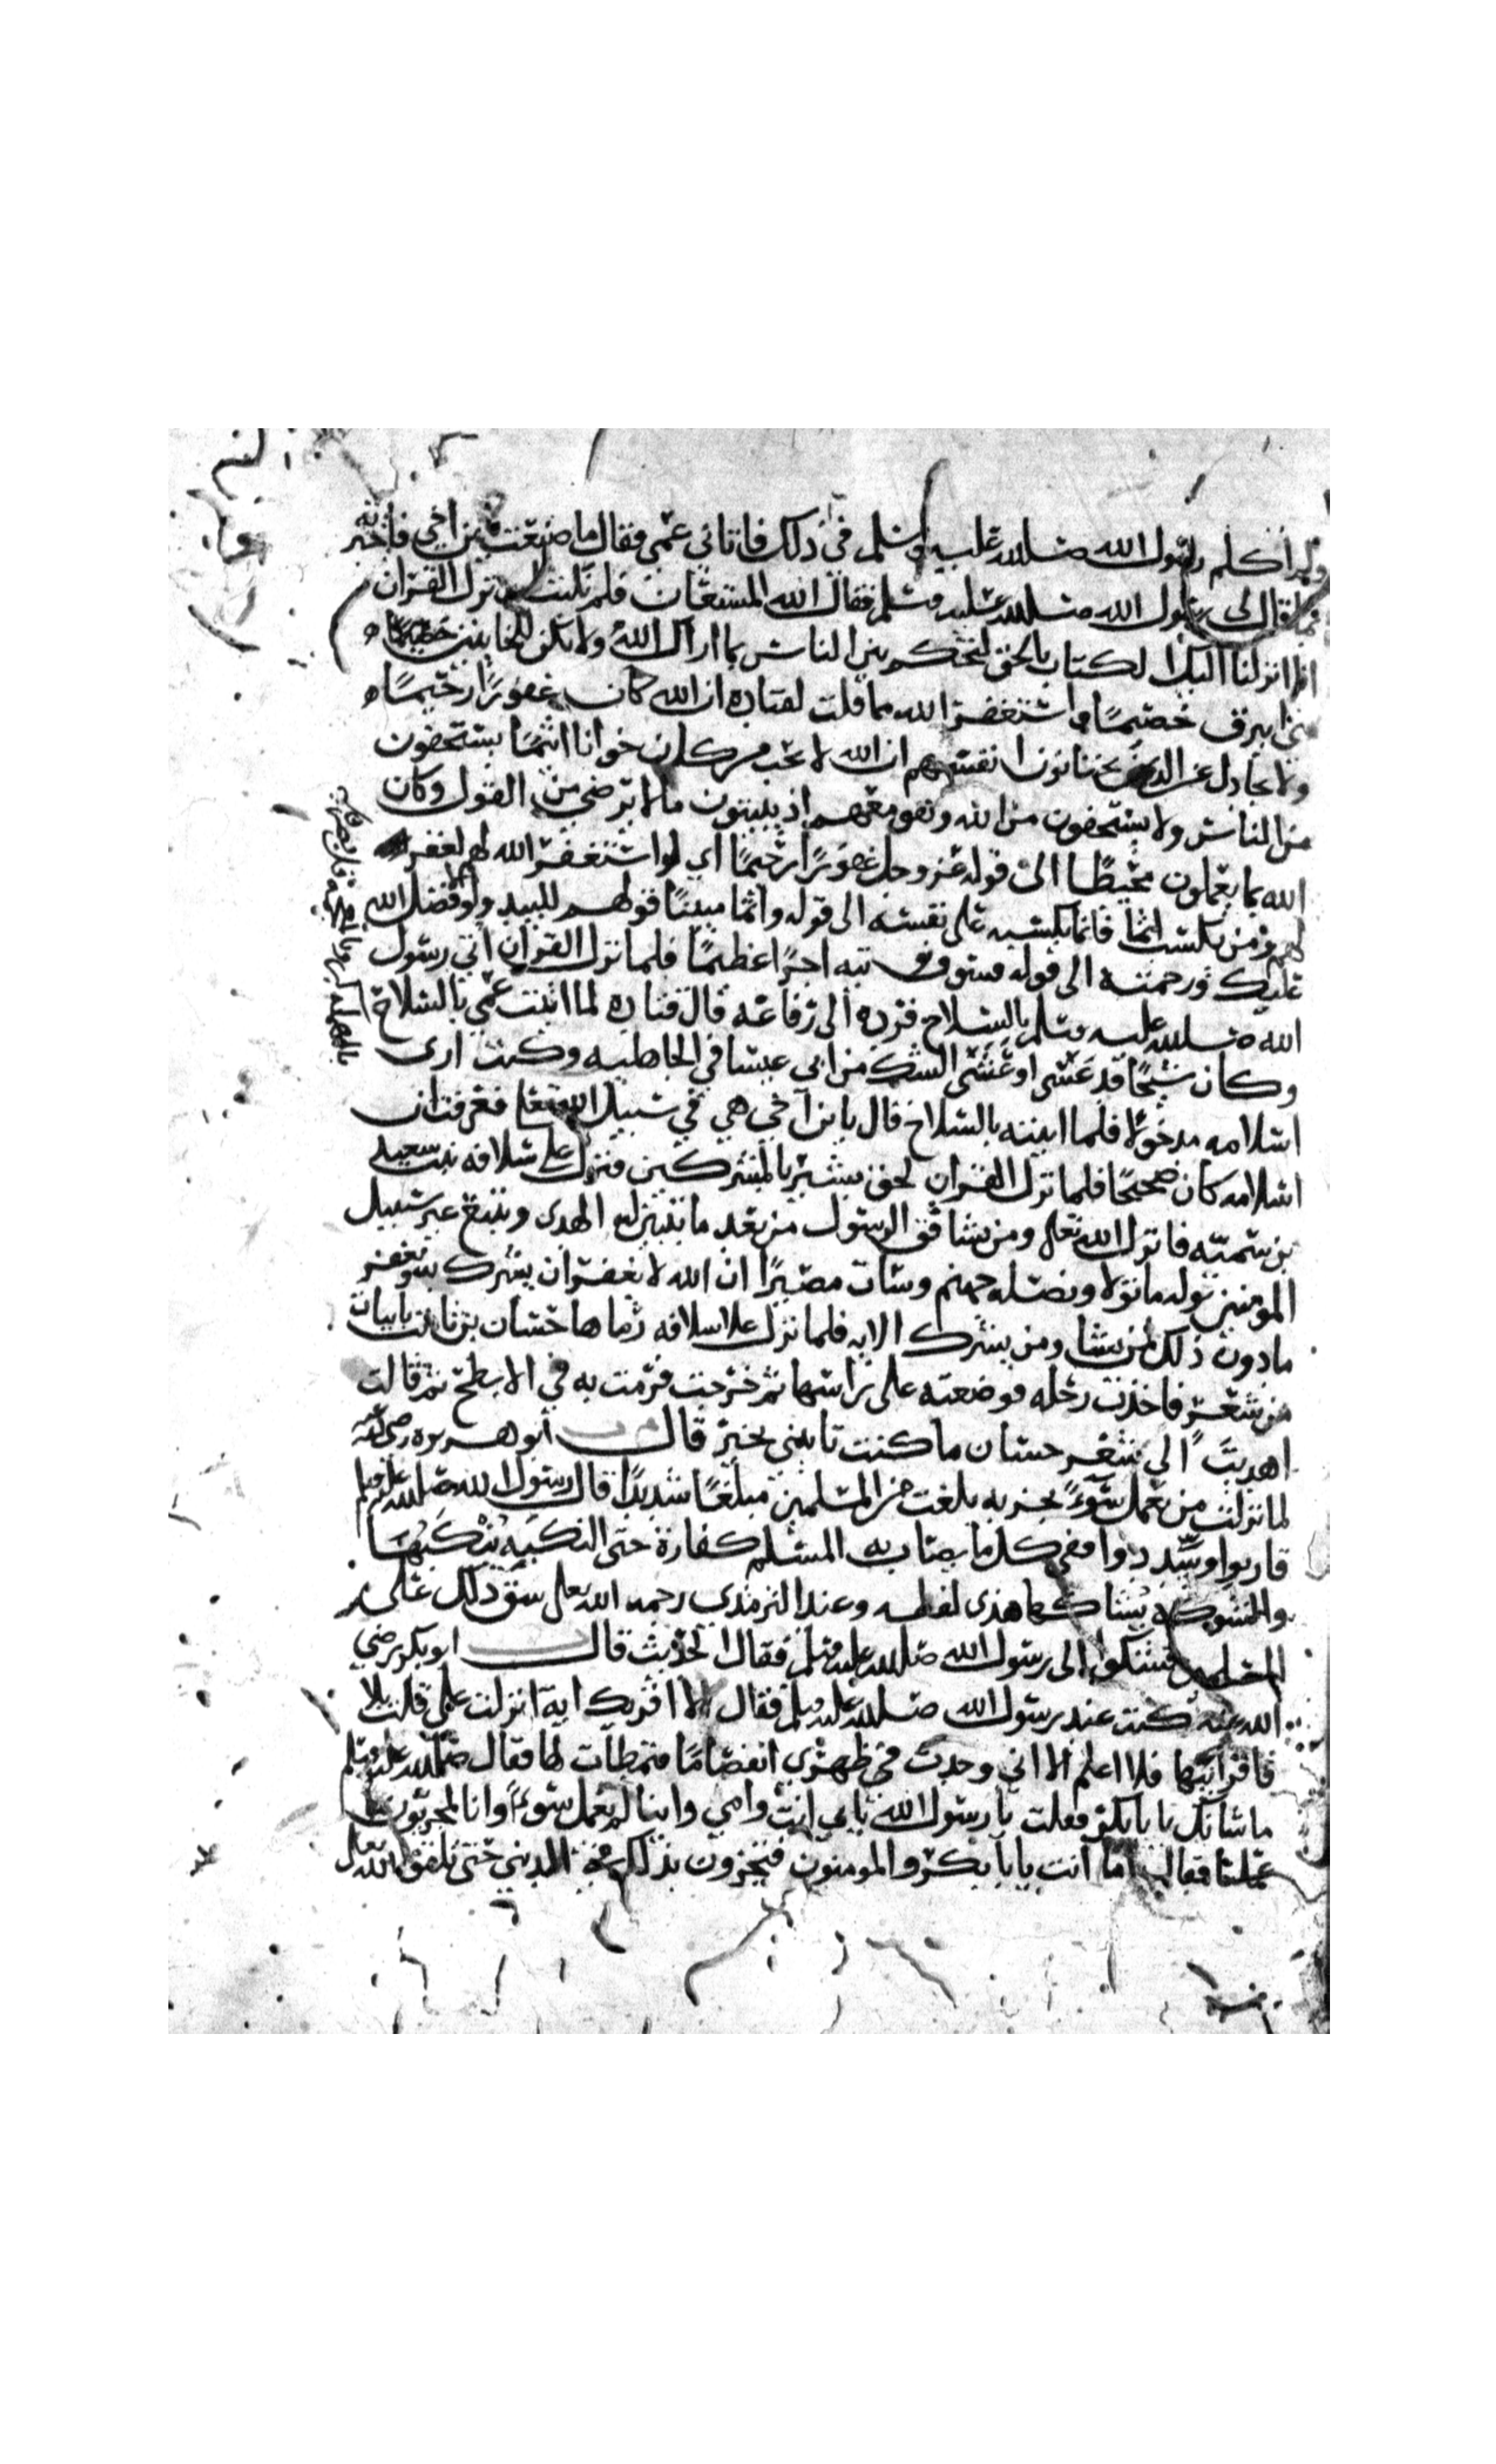 ولم اكلم رسول الله صلى الله عليه وسلم في ذلك فاتاني عمي فقال ما صنعت يا بن اخي فاخبرته
بما قال لي رسول الله صلى الله عليه وسلم فقال الله المستعان فلم تلبث ان نزل القران
انا انزلنا اليك الكتاب بالحق لتحكم بين الناس بما اراك الله ولا تكن للخاينين خصيما
بني ابيرق خصيما واستغفر الله مما قلت لقتاده ان الله كان غفورا رحيما
ولا تجادل عن الذين يختانون انفسهم ان الله لا يحب من كان خوانا اثيما يستخفون
من الناس ولا يستخفون من الله وهو معهم اذ يبيتون ما لا يرضى من القول وكان
الله بما يعملون محيطا الى قوله عز وجل غفورا رحيما اي لو استغفر الله لهم لغفر
لهم ومن يكسب اثما فانما يكسبه على نفسه الى قوله واثما مبينا قولهم للبيد ولولا فضل الله
عليك ورحمته الى قوله فسوف نوتيه اجرا عظيما فلما نزل القران اتي رسول
الله صلى الله عليه وسلم بالسلاح فرده الى رفاعه قال قتاده لما اتيت عمي بالسلاح
وكان شيخا قد عسى او عشى الشك من ابي عيسا في الجاهليه وكنت ارى
اسلامه مدخولا فلما اتيته بالسلاح قال يا بن اخي هي في سبيل الله تعالى فعرفت ان
اسلامه كان صحيحا فلما نزل القران لحق بشير بالمشركين فنزل على سلافه بنت سعيد
بن سميه فانزل الله تعالى ومن يشاقق الرسول من بعد ما تبين له الهدى ويتبع غير سبيل
المومنين نوله ما تولا ونصله جهنم وسات مصيرا ان الله لا يغفر ان يشرك به ويغفر
ما دون ذلك لمن يشا ومن يشرك الايه فلما نزل على سلافه رماها حسان بن ثابت بابيات
من شعر فاخذت رحله فوضعته على راسها ثم خرجت فرمت به في الابطح ثم قالت
اهديت الي شعر حسان ما كنت تاتيني بخير قال ابو هريره رضي الله عنه
لما نزلت من يعمل سوءا يجز به بلغت من المسلمين مبلغا شديدا قال رسول الله صلى الله عليه وسلم
قاربوا وسددوا ففي كل ما يصاب به المسلم كفارة حتى النكبة ينكبها
والشوكه يشاكها هذى لفظه وعند الترمذي رحمه الله تعالى شق ذلك على
المسلمين فشكوا الى رسول الله صلى الله عليه وسلم فقال الحديث قال ابو بكر رضي
الله عنه كنت عند رسول الله صلى الله عليه وسلم فقال الا اقريك اية انزلت علي قلت بلا
فاقرانيها فلا اعلم الا اني وجدت في ظهري انفصاما فتمطات لها فقال صلى الله عليه وسلم
ما شانك يا بابكر فقلت يا رسول الله بابي انت وامي واينا لم يعمل سوءا وانا لمجزيون بما
عملنا فقال اما انت يابا بكر والمومنون فتجزون بذلك في الدنيى حتى تلقوا الله تعالى